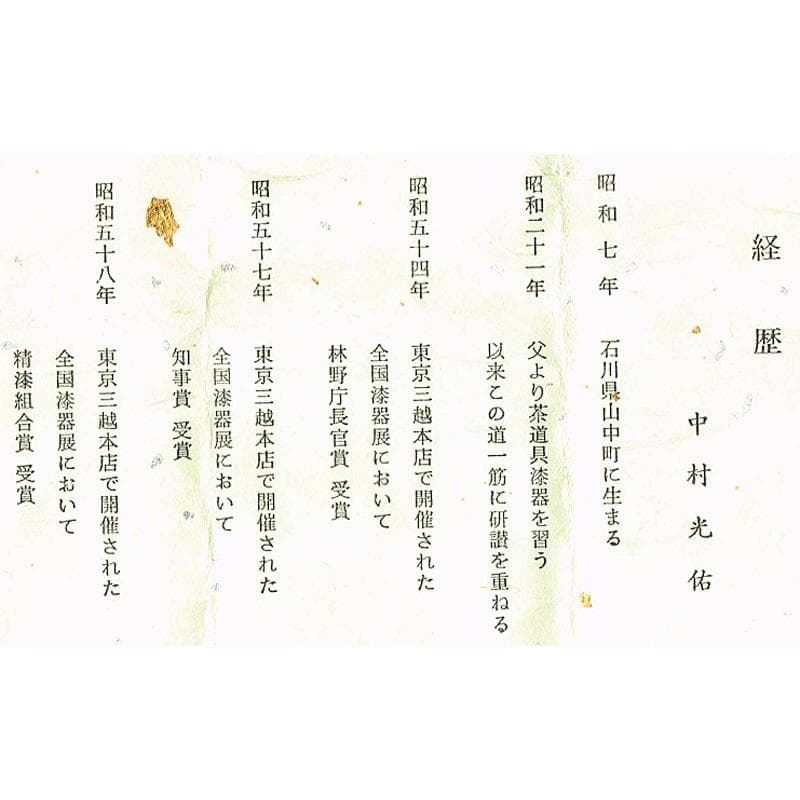 経歴
中村光佑
昭和七年 石川県山中町に生まる
昭和二十一年 父より茶道具漆器を習う
以来この道一筋に研讃を重ねる
昭和五十四年 東京三越本店で開催された
全国漆器展において
林野庁長官賞 受賞
昭和五十七年 東京三越本店で開催された
全国漆器展において
知事賞 受賞
昭和五十八年 東京三越本店で開催された
全国漆器展において
精漆組合賞 受賞